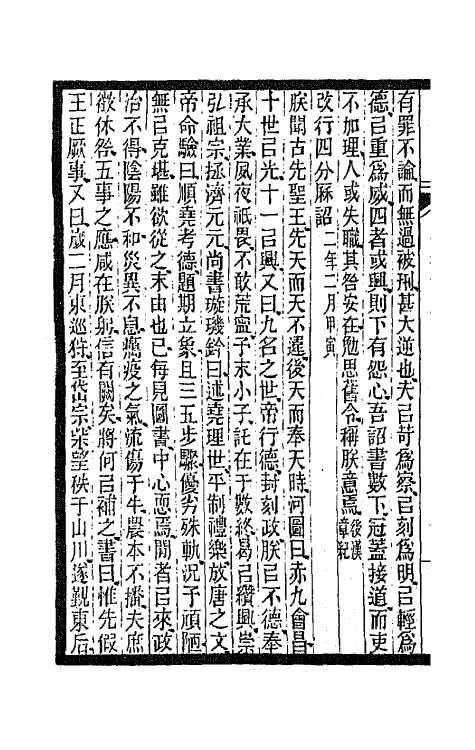 有罪不論而無過被刑甚大逆也夫㠯苛爲察㠯刻爲明㠯輕爲
德㠯重爲威四者或興則下有怨心吾詔書數下冠蓋接道而吏
不加理人或失職其咎安在勉思舊令稱朕意焉後漢章紀
改行四分厤詔二年二月甲寅
朕聞古先聖王先天而天不違後天而奉天時河圖曰赤九會昌
十世㠯光十一㠯興又曰九名之世帝行德封刻政朕㠯不德奉
承大業夙夜祗畏不敢荒寧予末小子託在于數終曷㠯纘興崇
弘祖宗拯濟元元尚書璇璣鈐曰述堯理世平制禮樂放唐之文
帝命驗曰順堯考德題期立象且三五步驟優劣殊軌況予頑陋
無㠯克堪雖欲從之末由也已每見圖書中心恧焉閒者㠯來政
治不得陰陽不和災異不息癘疫之氣流傷于牛農本不播夫庶
徵休咎五事之應咸在朕躬信有闕矣將何㠯補之書曰惟先假
王正厥事又曰歲二月東巡狩至岱宗柴望秩于山川遂覲東后